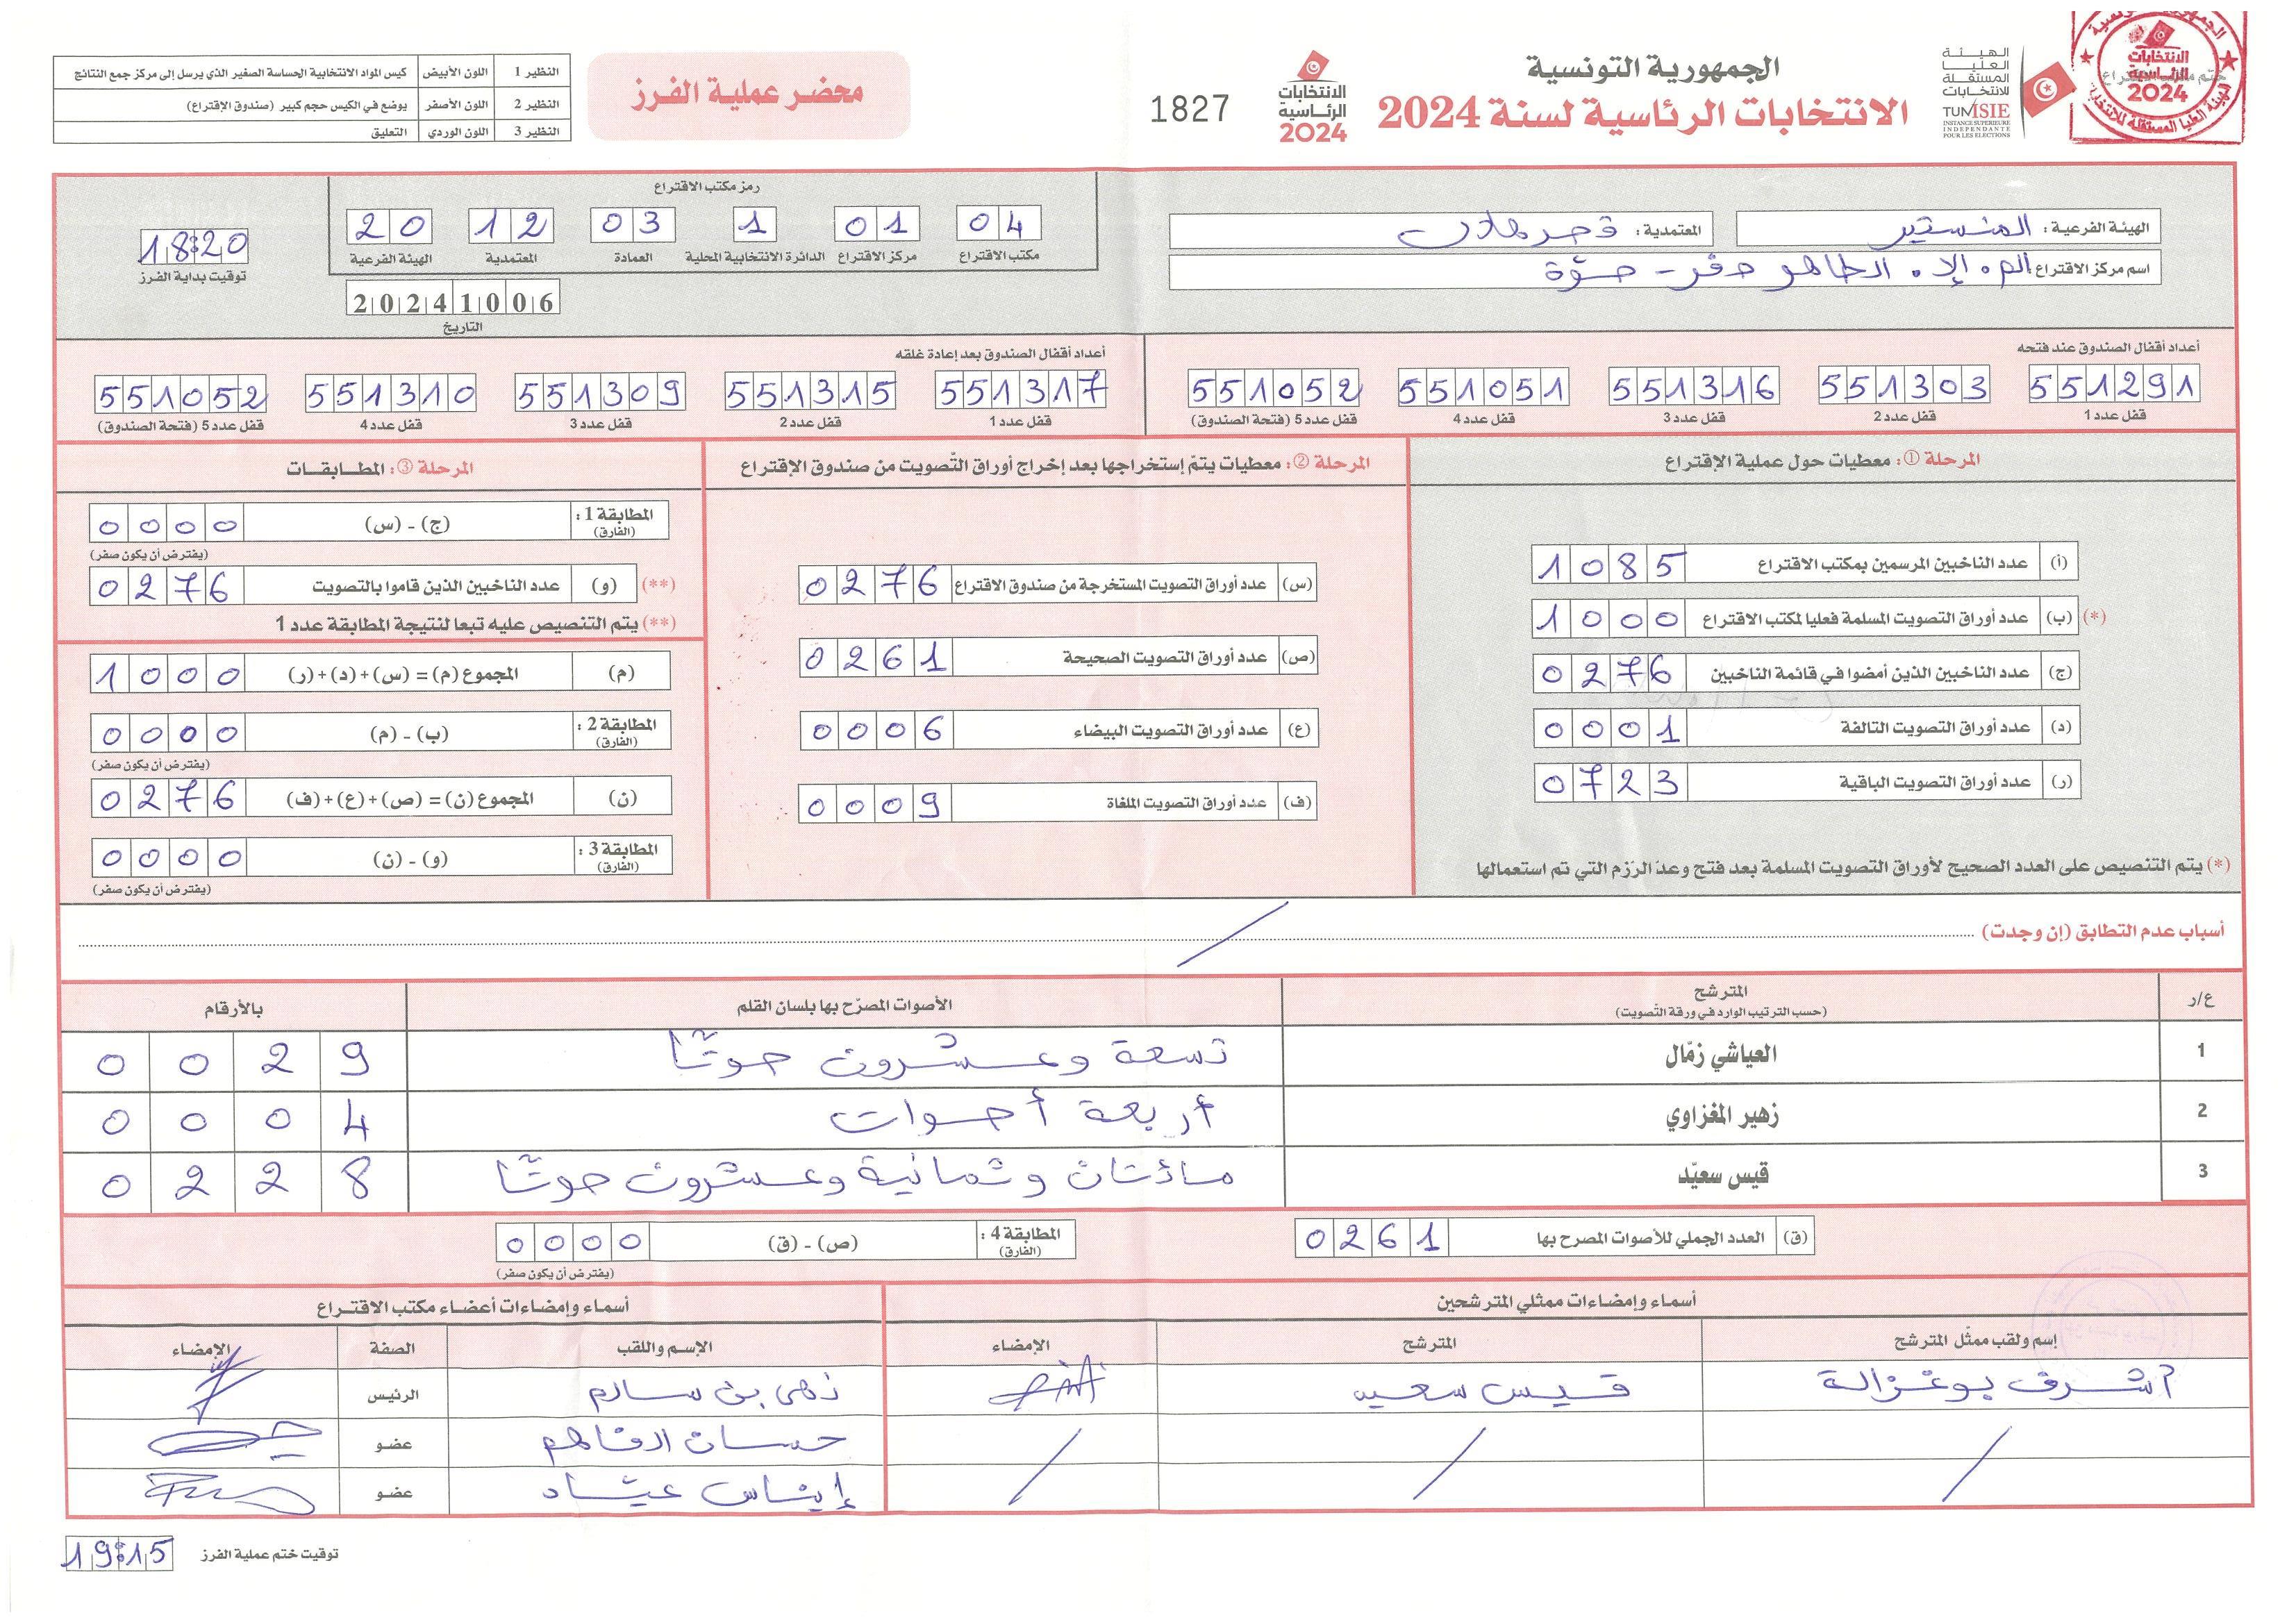 الجمهورية التونسية
الانتخابات الرئاسية لسنة 2024
الهيئة العليا المستقلة للانتخابات
TUNISIE
INSTANCE SUPERIEURE INDEPENDANTE POUR LES ELECTIONS
الانتخابات الرئاسية 2024
1827
محضر عملية الفرز
النظير 1 اللون الأبيض كيس المواد الانتخابية الحساسة الصغير الذي يرسل إلى مركز جمع النتائج
النظير 2 اللون الأصفر يوضع في الكيس حجم كبير (صندوق الإقتراع)
النظير 3 اللون الوردي التعليق
الهيئة الفرعية : المنستير
المعتمدية : قصر هلال
اسم مركز الاقتراع : الم. الإ. الطاهر صفر -
رمز مكتب الاقتراع
04 مكتب الاقتراع
01 مركز الاقتراع
1 الدائرة الانتخابية المحلية
03 العمادة
12 المعتمدية
20 الهيئة الفرعية
20241006
التاريخ
18:20
توقيت بداية الفرز
أعداد أقفال الصندوق عند فتحه
551291 551303 551316 551051 551052
قفل عدد 1 قفل عدد 2 قفل عدد 3 قفل عدد 4 قفل عدد 5 (فتحة الصندوق)
أعداد أقفال الصندوق بعد إعادة غلقه
551317 551315 551309 551310 551052
قفل عدد 1 قفل عدد 2 قفل عدد 3 قفل عدد 4 قفل عدد 5 (فتحة الصندوق)
المرحلة ① : معطيات حول عملية الإقتراع
(أ) عدد الناخبين المرسمين بمكتب الاقتراع 1085
(*) (ب) عدد أوراق التصويت المسلمة فعليا لمكتب الاقتراع 1000
(ج) عدد الناخبين الذين أمضوا في قائمة الناخبين 0276
(د) عدد أوراق التصويت التالفة 0001
(ر) عدد أوراق التصويت الباقية 0723
(*) يتم التنصيص على العدد الصحيح لأوراق التصويت المسلمة بعد فتح وعدّ الرّزم التي تم استعمالها
المرحلة ② : معطيات يتمّ إستخراجها بعد إخراج أوراق التّصويت من صندوق الإقتراع
(س) عدد أوراق التصويت المستخرجة من صندوق الاقتراع 0276
(ص) عدد أوراق التصويت الصحيحة 0261
(ع) عدد أوراق التصويت البيضاء 0006
(ف) عدد أوراق التصويت الملغاة 0009
المرحلة ③ : المطابقات
المطابقة 1 : (الفارق) (ج) - (س) 0000
(يفترض أن يكون صفر)
(**) (و) عدد الناخبين الذين قاموا بالتصويت 0276
(**) يتم التنصيص عليه تبعا لنتيجة المطابقة عدد 1
(م) المجموع (م) = (س)+(د)+(ر) 1000
المطابقة 2 : (الفارق) (ب) - (م) 0000
(يفترض أن يكون صفر)
(ن) المجموع (ن) = (ص)+(ع)+(ف) 0276
المطابقة 3 : (الفارق) (و) - (ن) 0000
(يفترض أن يكون صفر)
أسباب عدم التطابق (إن وجدت) /
ع/ر المترشح (حسب الترتيب الوارد في ورقة التصويت) الأصوات المصرّح بها بلسان القلم بالأرقام
1 العياشي زمّال تسعة وعشرون صوتًا 0029
2 زهير المغزاوي أربعة أصوات 0004
3 قيس سعيّد مائتان وثمانية وعشرون صوتًا 0228
(ق) العدد الجملي للأصوات المصرح بها 0261
المطابقة 4 : (الفارق) (ص) - (ق) 0000
(يفترض أن يكون صفر)
أسماء وإمضاءات ممثلي المترشحين
إسم ولقب ممثّل المترشح المترشح الإمضاء
أشرف بوغزالة قيس سعيد
/ / /
أسماء وإمضاءات أعضاء مكتب الاقتراع
الإسم واللقب الصفة الإمضاء
بن سالم الرئيس
حسان عضو
إيناس عياد عضو
توقيت ختم عملية الفرز 19:15